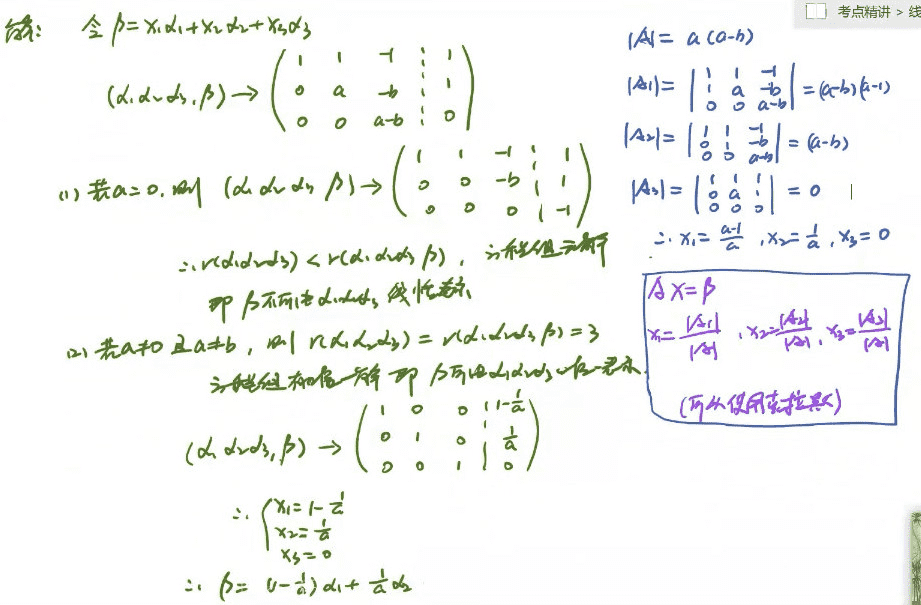 考点精讲 > 线
解: 令 β=x₁α₁+x₂α₂+x₃α₃
(α₁α₂α₃,β)→
1 1 -1 1
0 a -b 1
0 0 a-b 0
(1) 若a=0,则 (α₁α₂α₃ β)→
1 1 -1 1
0 0 -b 1
0 0 0 -1
∴r(α₁α₂α₃)<r(α₁α₂α₃ β), 方程组无解
即 β不可由α₁α₂α₃ 线性表示
(2) 若a≠0且a≠b, 则 r(α₁α₂α₃)=r(α₁α₂α₃ β)=3
方程组有唯一解 即 β可由α₁α₂α₃唯一表示.
(α₁ α₂α₃,β)→
1 0 0 1-1/a
0 1 0 1/a
0 0 1 0
∴ x₁=1-1/a
x₂=1/a
x₃=0
∴ β=(1-1/a)α₁+1/a α₂
|A|= a(a-b)
|A₁|= | 1 1 -1 | =(a-b)(a-1)
1 a -b
0 0 a-b
|A₂|= | 1 1 -1 | =(a-b)
0 1 -b
0 0 a-b
|A₃|= | 1 1 1 | =0
0 a 1
0 0 0
∴ x₁=(a-1)/a ,x₂=1/a ,x₃=0
AX=β
x₁=|A₁|/|A| ,x₂=|A₂|/|A| ,x₃=|A₃|/|A|
(可以使用克拉默)